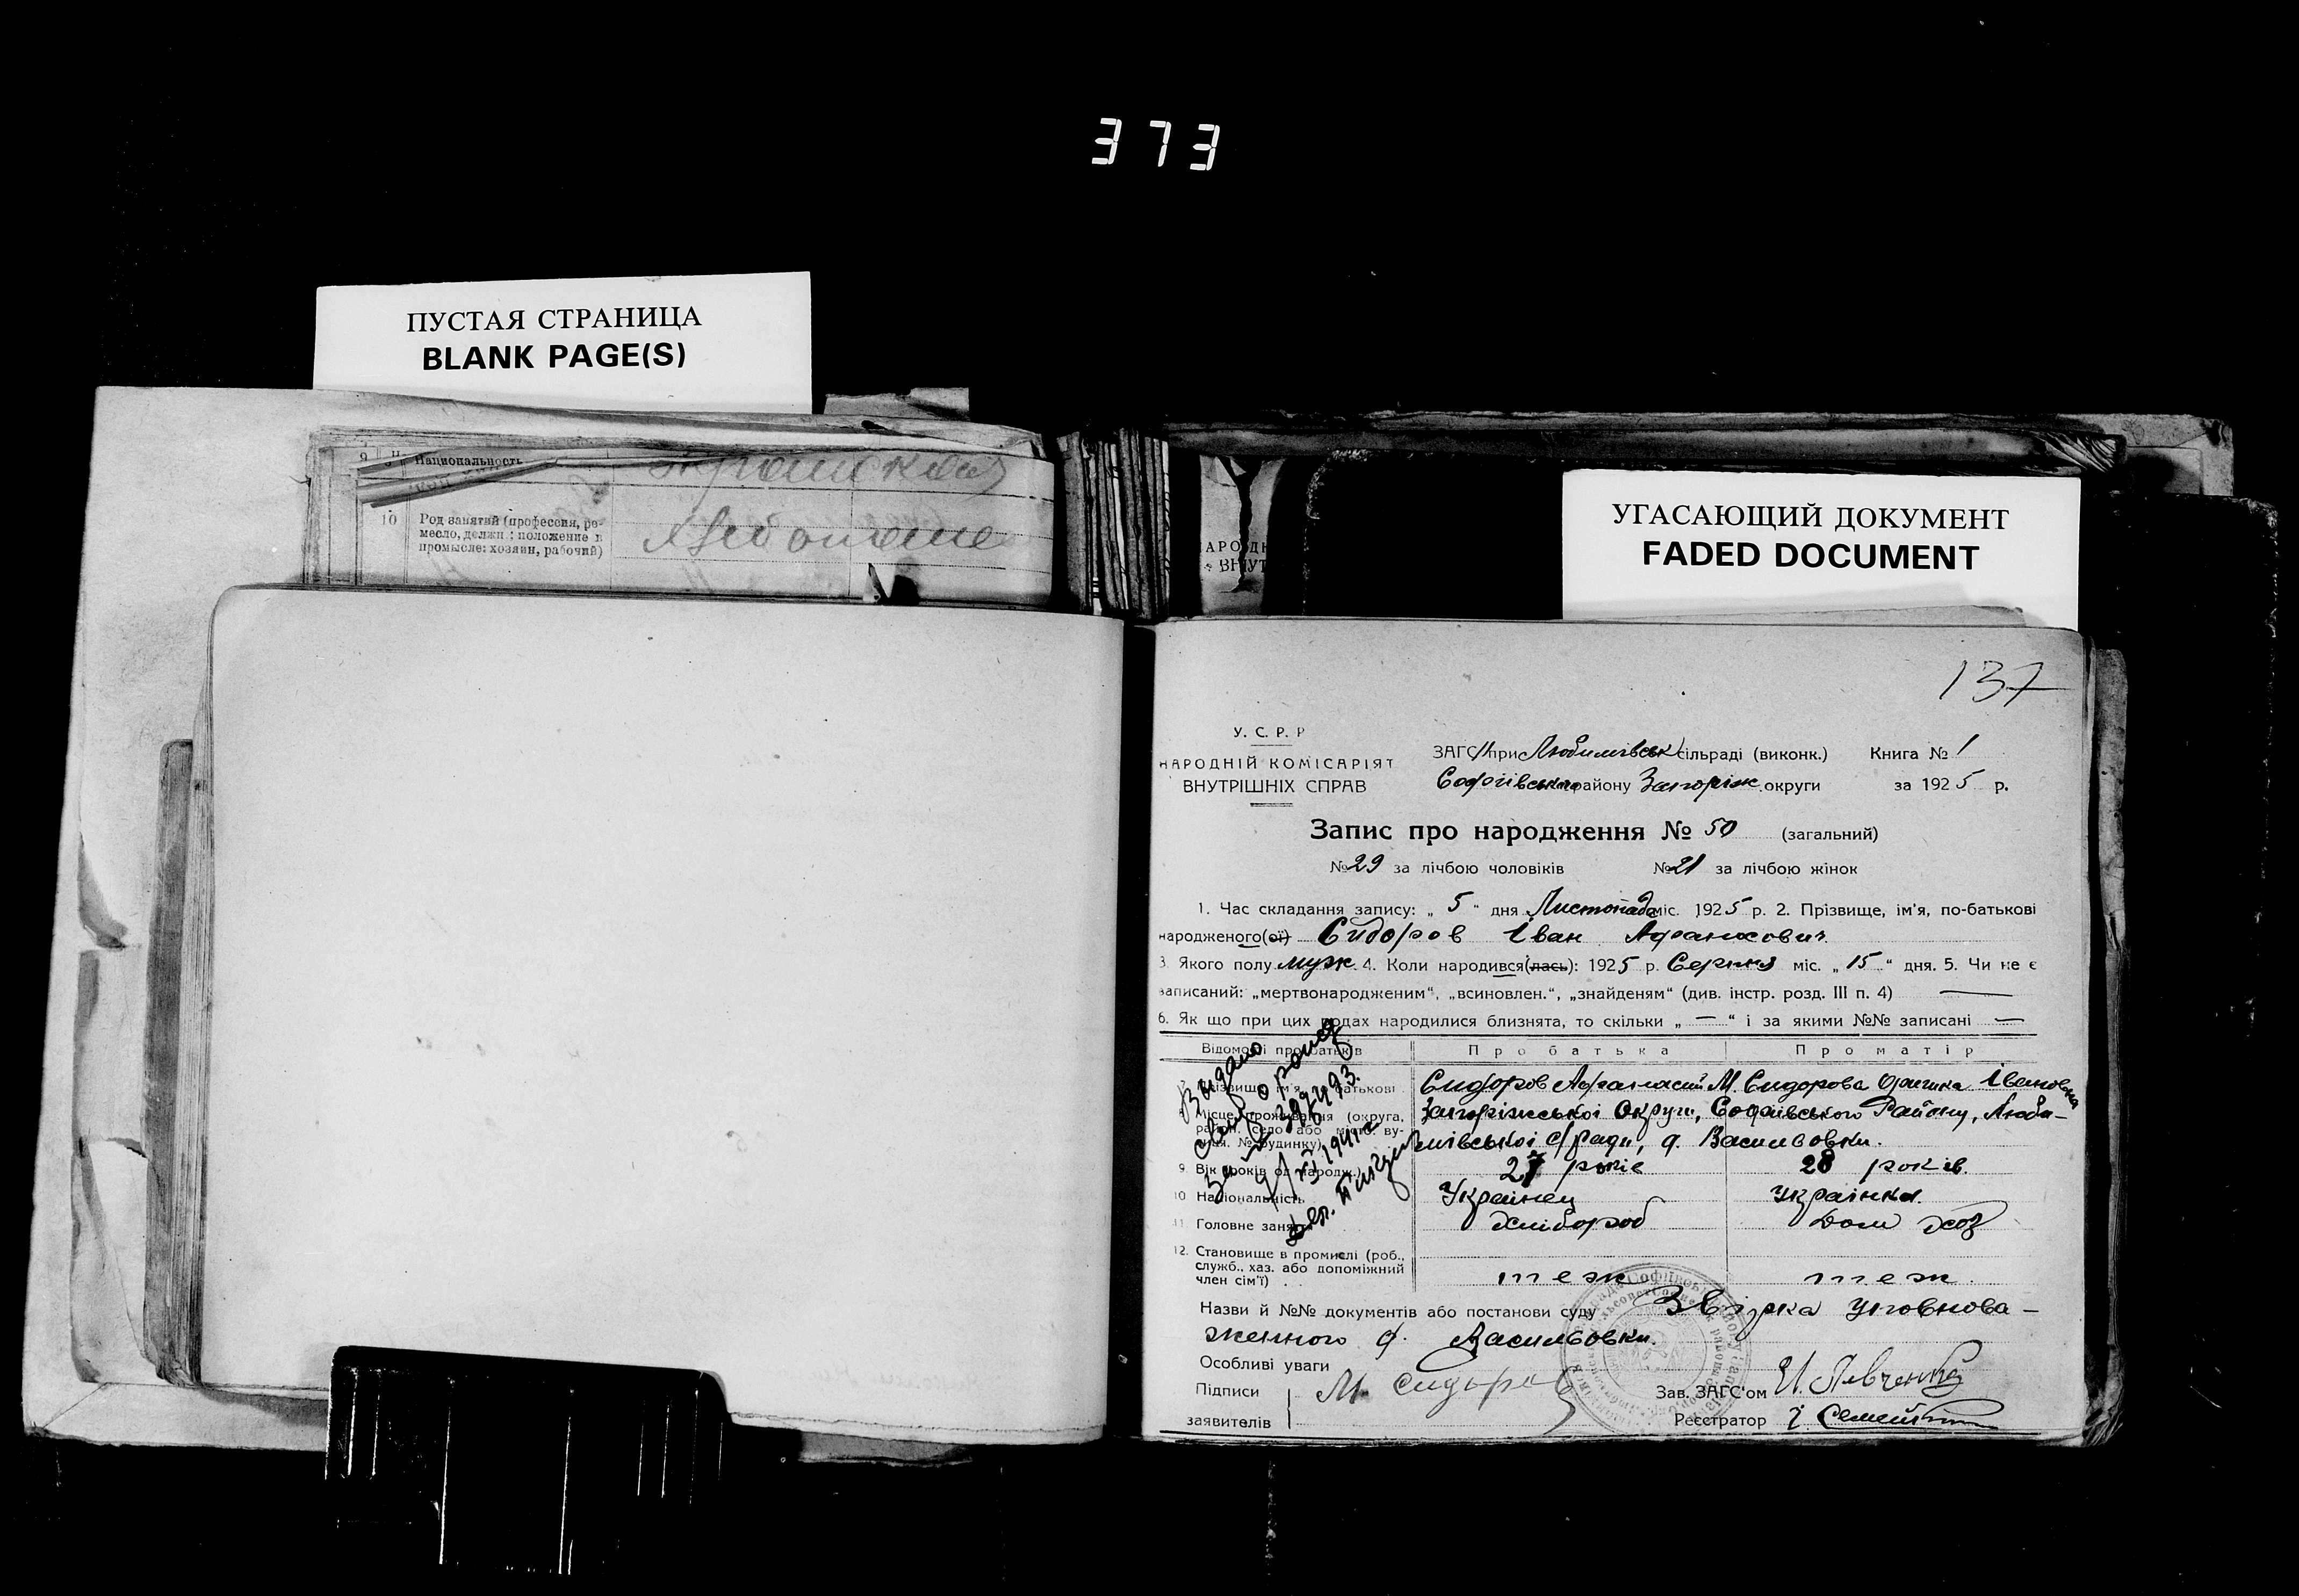 373
ПУСТАЯ СТРАНИЦА
BLANK PAGE(S)
9 Национальность
10 Род занятий (профессия, ре-
месло, должн.: положение в
промысле: хозяин, рабочий)
УГАСАЮЩИЙ ДОКУМЕНТ
FADED DOCUMENT
137
У. С. Р. Р
НАРОДНІЙ КОМІСАРІЯТ
ВНУТРІШНІХ СПРАВ
ЗАГС при Любимівськ сільраді (виконк.) Книга № 1
Софіївського району Запоріж. округи за 1925 р.
Запис про народження № 50 (загальний)
№ 29 за лічбою чоловіків № 21 за лічбою жінок
1. Час складання запису: „ 5 “ дня Листопада міс. 1925 р. 2. Прізвище, ім'я, по-батькові
народженого(ої) Сидоров Іван Афанасович.
3. Якого полу муж. 4. Коли народився(лась): 1925 р. Серпня міс. „ 15 “ дня. 5. Чи не є
записаний: „мертвонародженим“, „всиновлен.“, „знайденям“ (див. інстр. розд. III п. 4) —
6. Як що при цих родах народилися близнята, то скільки „ — “ і за якими №№ записані —
Відомості про батьків Про батька Про матір
Прізвище, ім'я, по батькові Сидоров Афанасий М. Сидорова Івановна
Місце проживання (округа, Запоріжської Округи, Софиівського Району, Люби-
район, село або місто, ву-
лиця, № будинку) мівської с/ради, д. Васильовки.
9. Вік (років од народж.) 27 років 28 років.
10 Національність Українец Українка.
11. Головне заняття Хлібороб Дом хоз
12. Становище в промислі (роб.,
служб., хаз. або допоміжний
член сім'ї) теж теж.
Видано
№ 397493.
1941
Назви й №№ документів або постанови суду Звірка уповнова-
женного д. Васильовки.
Особливі уваги
Підписи М. Сидоров Зав. ЗАГС'ом
заявителів Реєстратор